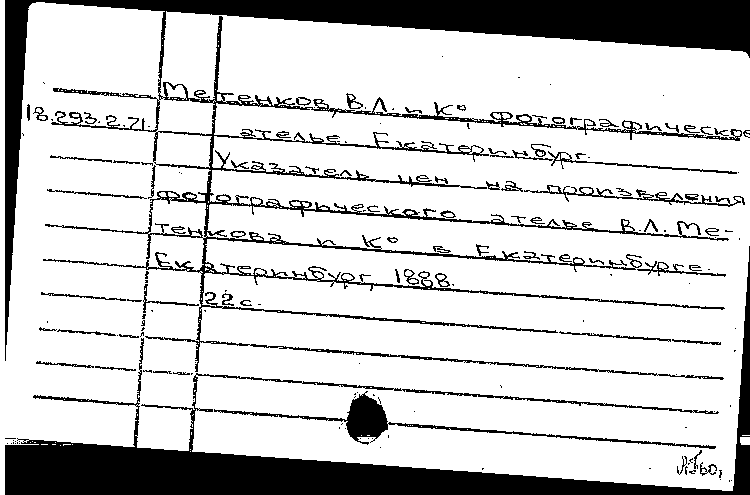 Метенков, В.Л. и К°, фотографическое
18.293.2.71.
ателье. Екатеринбург.
Указатель цен на произведения
фотографического ателье В.Л. Ме-
тенкова и К° в Екатеринбурге.
Екатеринбург, 1888.
22 с.